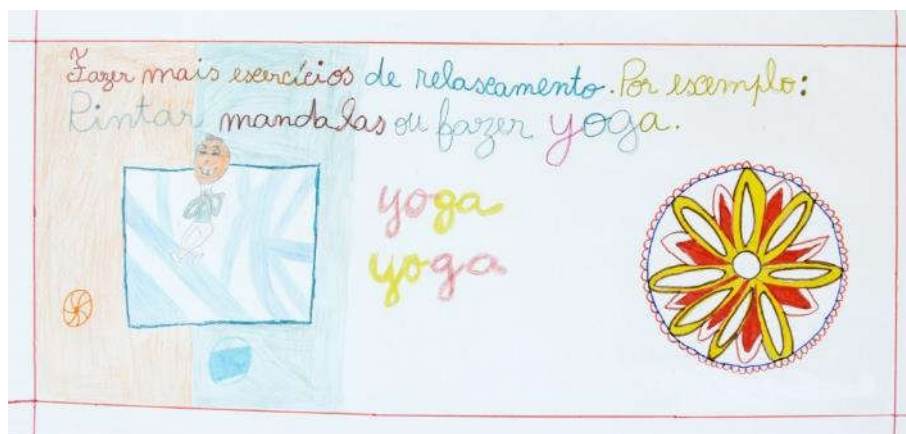 Fazer mais exercícios de relaxamento. Por exemplo:
Pintar mandalas ou fazer yoga.
yoga
yoga